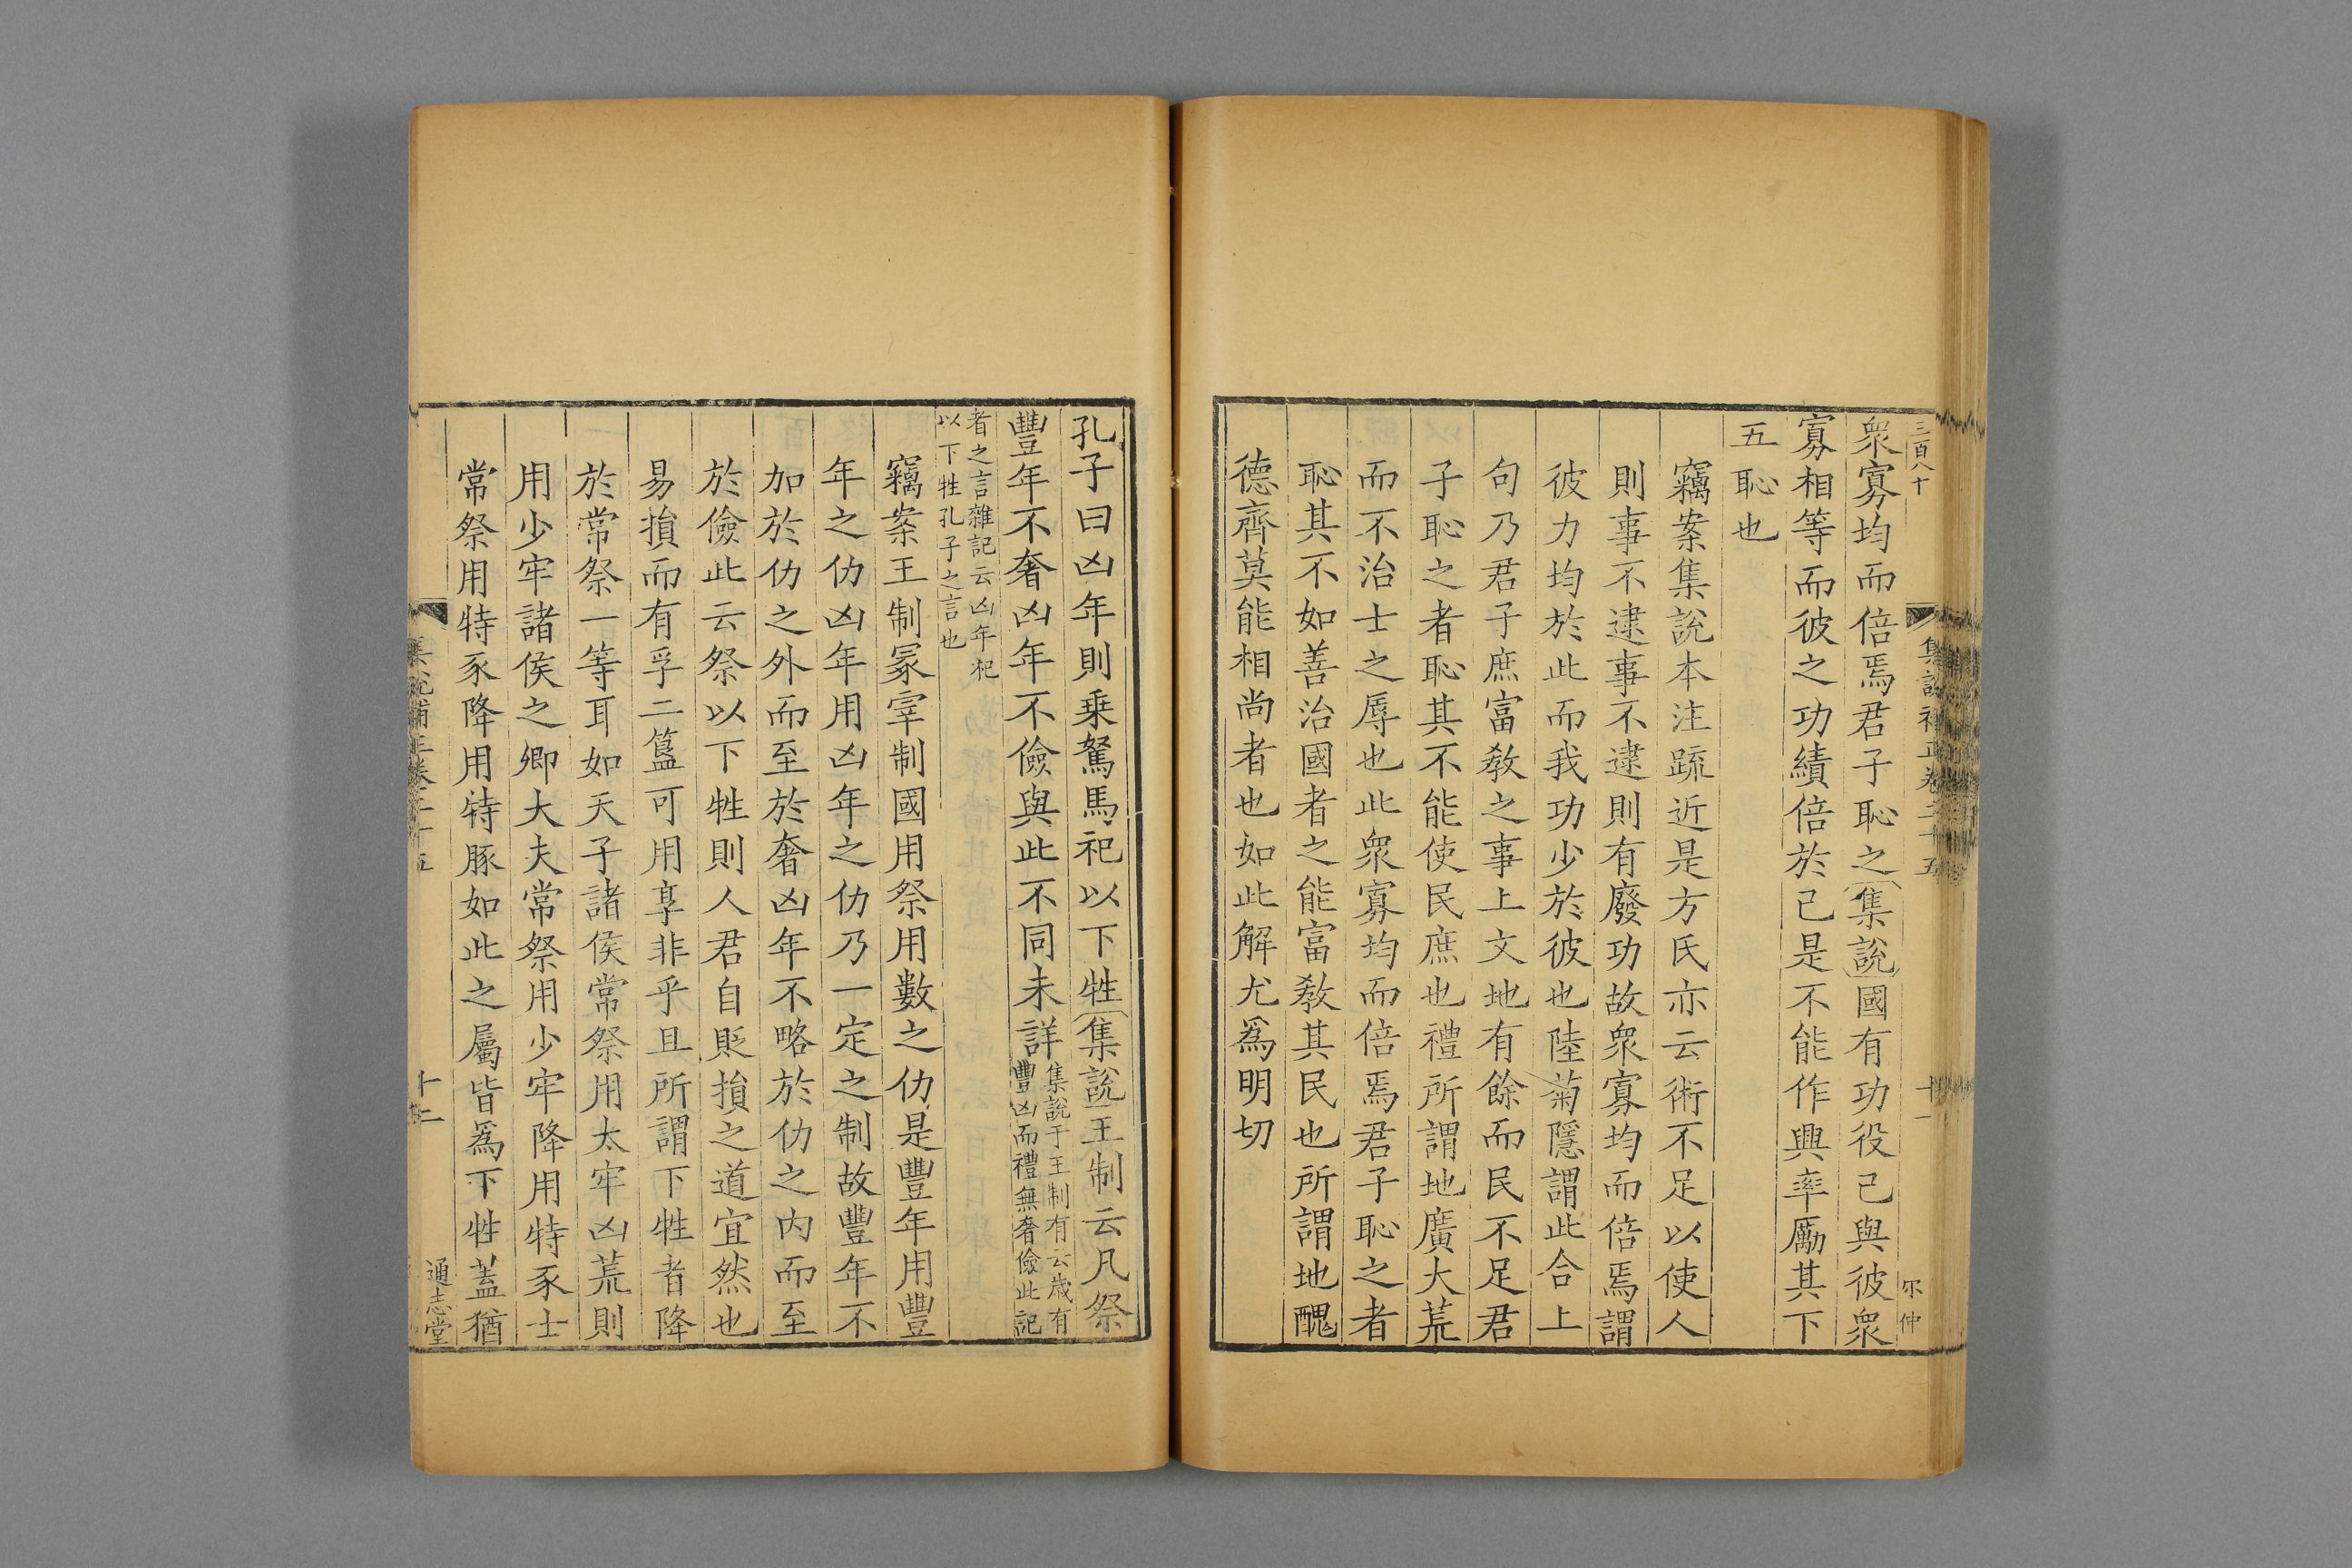 三百八十
集說補正卷二十五
十一
尔仲
衆寡均而倍焉君子恥之集說國有功役己與彼衆
寡相等而彼之功績倍於己是不能作興率厲其下
五恥也
竊案集說本注疏近是方氏亦云術不足以使人
則事不逮事不逮則有廢功故衆寡均而倍焉謂
彼力均於此而我功少於彼也陸菊隱謂此合上
句乃君子庶富敎之事上文地有餘而民不足君
子恥之者恥其不能使民庶也禮所謂地廣大荒
而不治士之辱也此衆寡均而倍焉君子恥之者
恥其不如善治國者之能富敎其民也所謂地醜
德齊莫能相尚者也如此解尤爲明切
孔子曰凶年則乗駑馬祀以下牲集說王制云凡祭
豐年不奢凶年不儉與此不同未詳集說于王制有云歳有
豐凶而禮無奢儉此記
者之言雜記云凶年祀
以下牲孔子之言也
竊案王制冡宰制國用祭用數之仂是豐年用豐
年之仂凶年用凶年之仂乃一定之制故豐年不
加於仂之外而至於奢凶年不略於仂之内而至
於儉此云祭以下牲則人君自貶損之道宜然也
易損而有孚二簋可用享非乎且所謂下牲者降
於常祭一等耳如天子諸侯常祭用太牢凶荒則
用少牢諸侯之卿大夫常祭用少牢降用特豕士
常祭用特豕降用特豚如此之屬皆爲下牲蓋猶
集說補正卷二十五
十二
通志堂